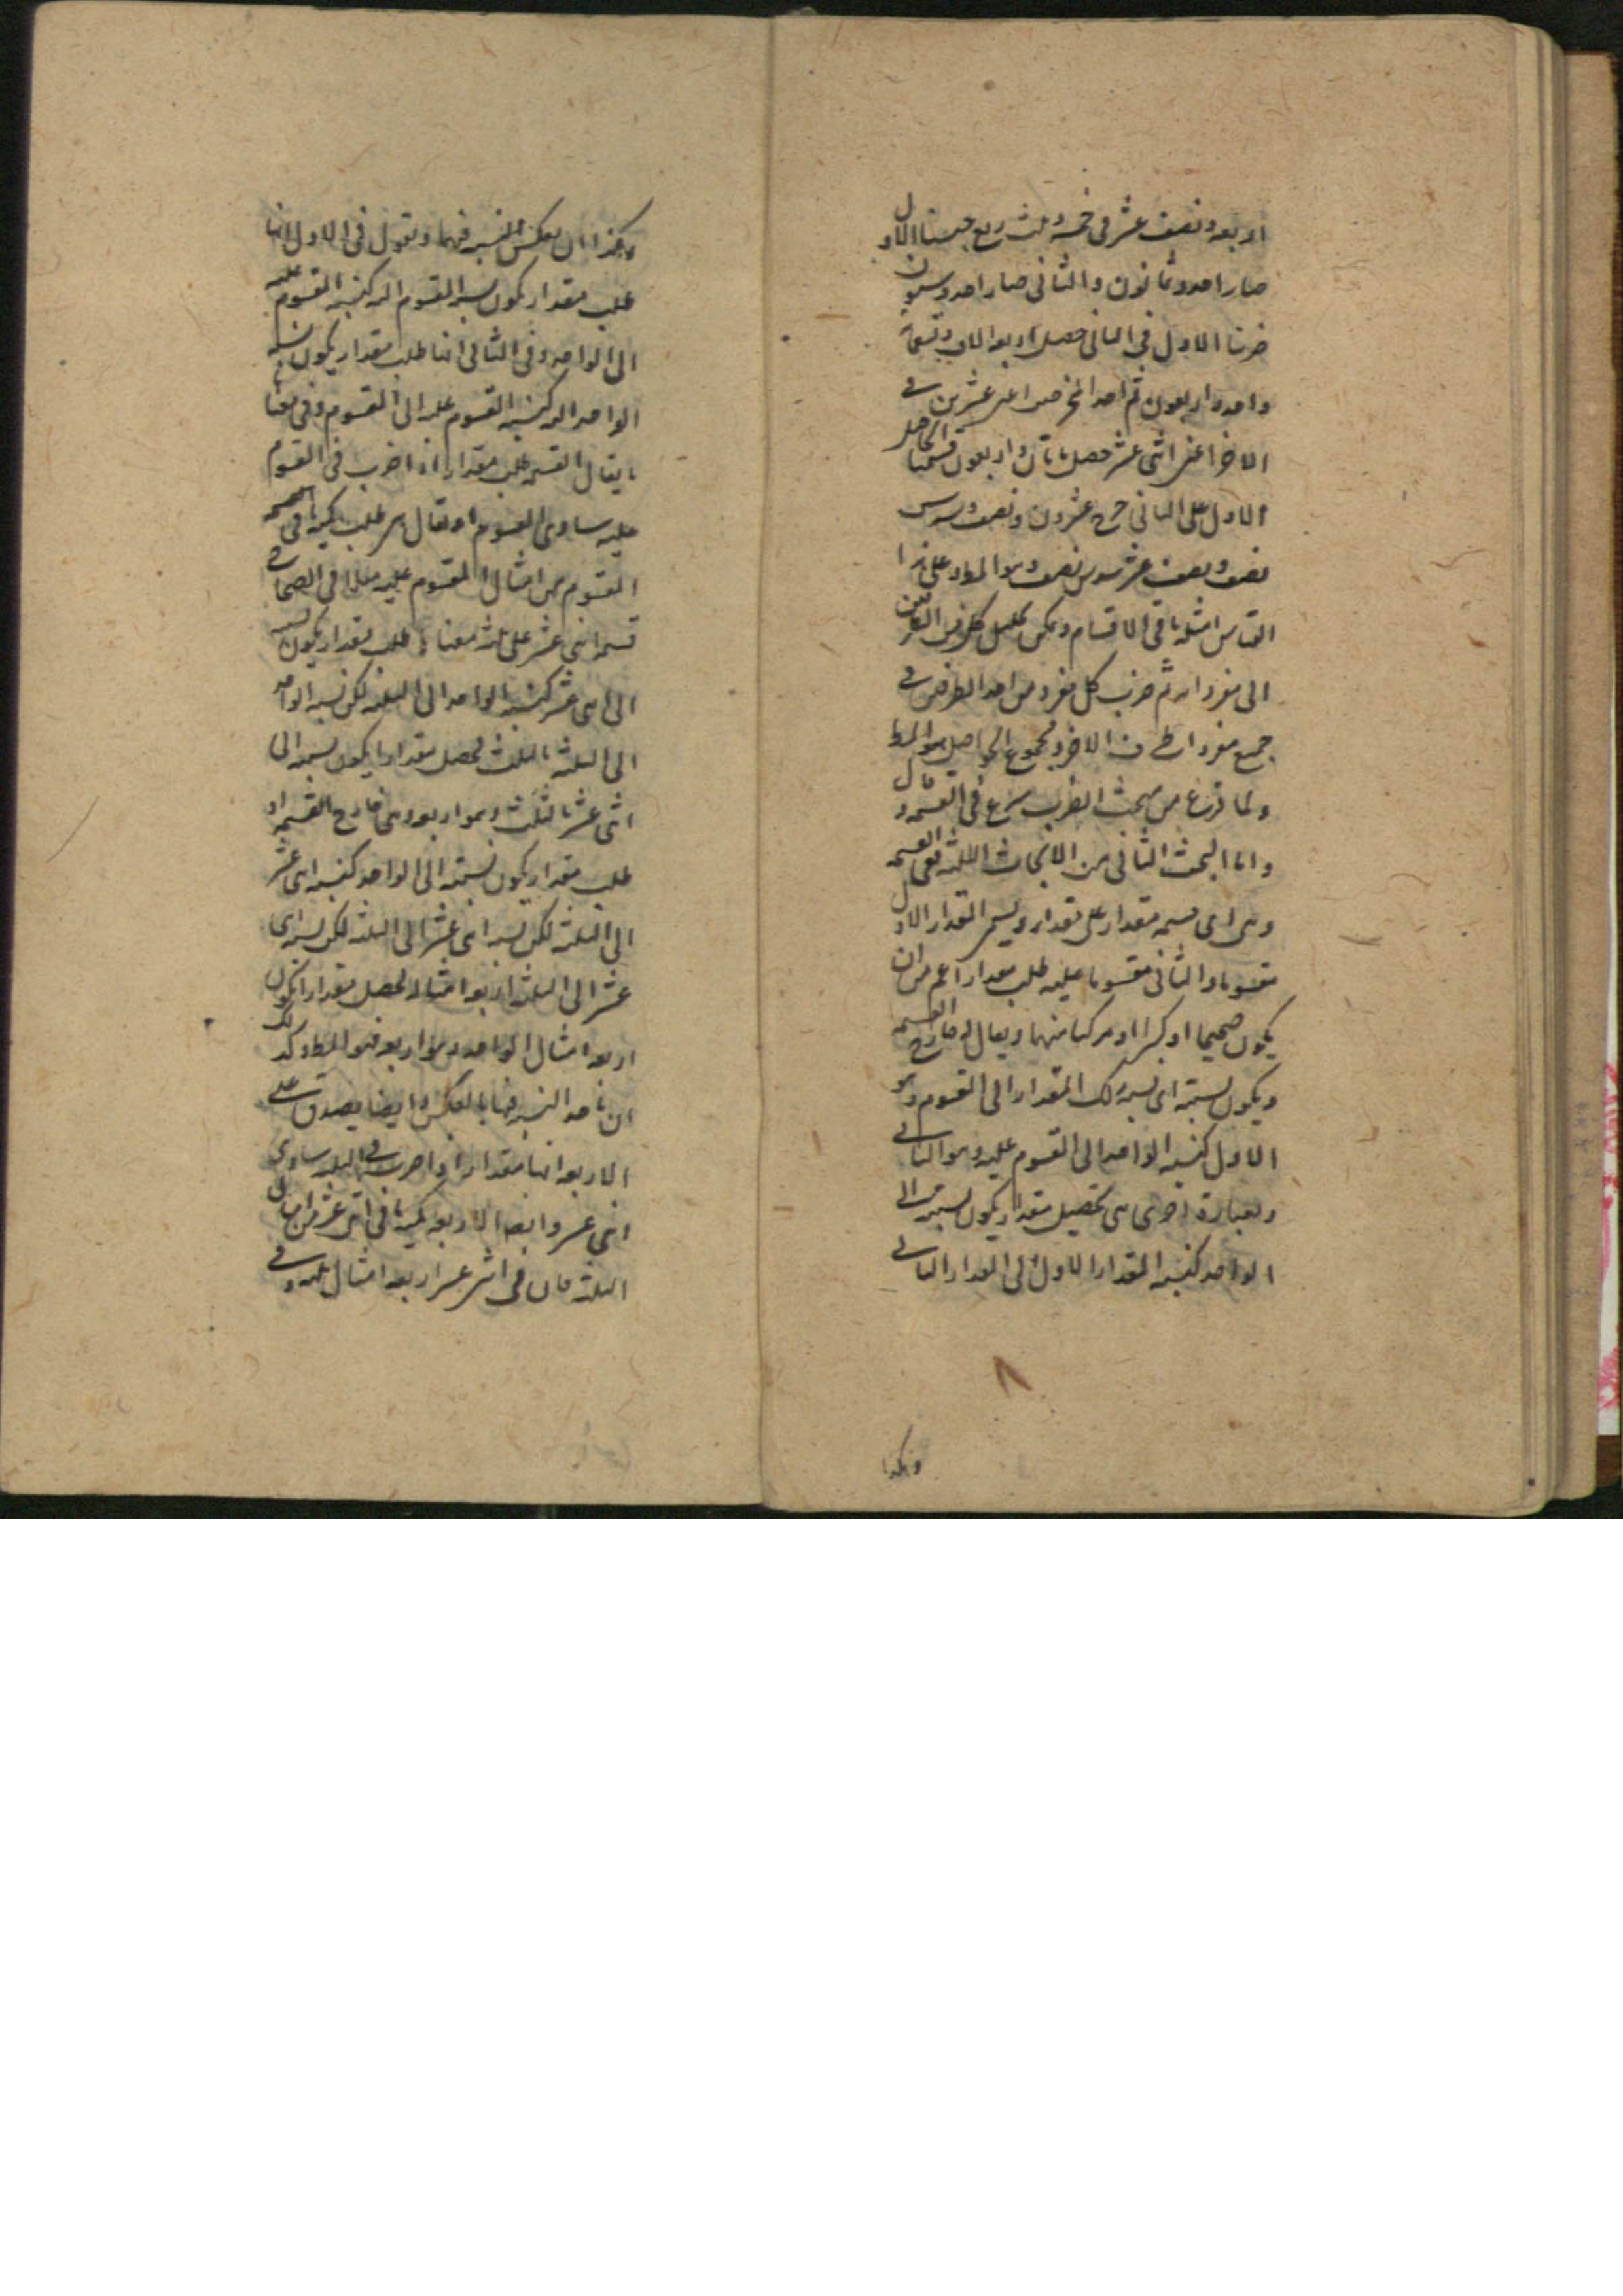 اربعه ونصف عشر فى خمسه وثلث ربع جنسنا الاول
صار احد وثمانون والثانى صار احد وستون
ضربنا الاول فى الثانى حصل اربعه الاف وتسعمائة
واحد واربعون ثم احد المخرجين اعنى عشرين فى
الاخر اعنى اثنى عشر حصل مائتان واربعون قسمنا الحاصل
الاول على الثانى خرج عشرون ونصف وسدس
نصف ونصف عشر سدس نصف وهو المط وعلى هذا
القياس امثله باقى الاقسام ويمكن تحليل كل من الطرفين
الى مفرداته ثم ضرب كل مفرد من احد الطرفين فى
جميع مفردات طرف الاخر ومجموع الحواصل هو المط
ولما فرغ من مبحث الضرب شرع فى القسمه وقال
واما البحث الثانى من الابحاث الثلثه ففى القسمه
وهى اى قسمه مقدار على مقدار ويسمى المقدار الاول
مقسوما والثانى مقسوما عليه طلب مقدار اعم من ان
يكون صحيحا او كسرا او مركبا منهما ويقال له خارج القسمه
ويكون نسبته اى نسبه ذلك المقدار الى المقسوم وهو
الاول كنسبه الواحد الى المقسوم عليه وهو الثانى
وبعبارة اخرى هى تحصيل مقدار يكون نسبته الى
الواحد كنسبه المقدار الاول الى المقدار الثانى
وهكذا
وهكذا ان يعكس النسبه فيهما ونقول فى الاول انها
طلب مقدار يكون نسبه المقسوم اليه كنسبه المقسوم عليه
الى الواحد وفى الثانى انها طلب مقدار يكون نسبه
الواحد اليه كنسبه المقسوم عليه الى المقسوم وفى معناها
ما يقال القسمه طلب مقدار اذا ضرب فى المقسوم
عليه ساوى المقسوم او يقال هى طلب كميه ما فى
المقسوم من امثال المقسوم عليه مثالها فى الصحاح
قسمه اثنى عشر على ثلثه معناه طلب مقدار يكون نسبته
الى اثنى عشر كنسبه الواحد الى الثلثه لكن نسبه الواحد
الى الثلثه بالثلث فحصل مقدارا يكون نسبته الى
اثنى عشر بالثلث وهو اربعه وهى خارج القسمه او
طلب مقدار يكون نسبته الى الواحد كنسبه اثنى عشر
الى الثلثه لكن نسبه اثنى عشر الى الثلثه لكن نسبه اثنى
عشر الى الثلثه اربعه امثاله فحصل مقدارا يكون
اربعه امثال الواحد وهو اربعه فهو المط وكذلك
ان ناخذ النسبه فيها بالعكس وايضا يصدق على
الاربعه انها مقدار اذا ضرب فى الثلثه ساوى
اثنى عشر وايضا الاربعه كميه ما فى اثنى عشر من امثال
الثلثه فان فى اثنى عشر اربعه امثال ثلثه وفى